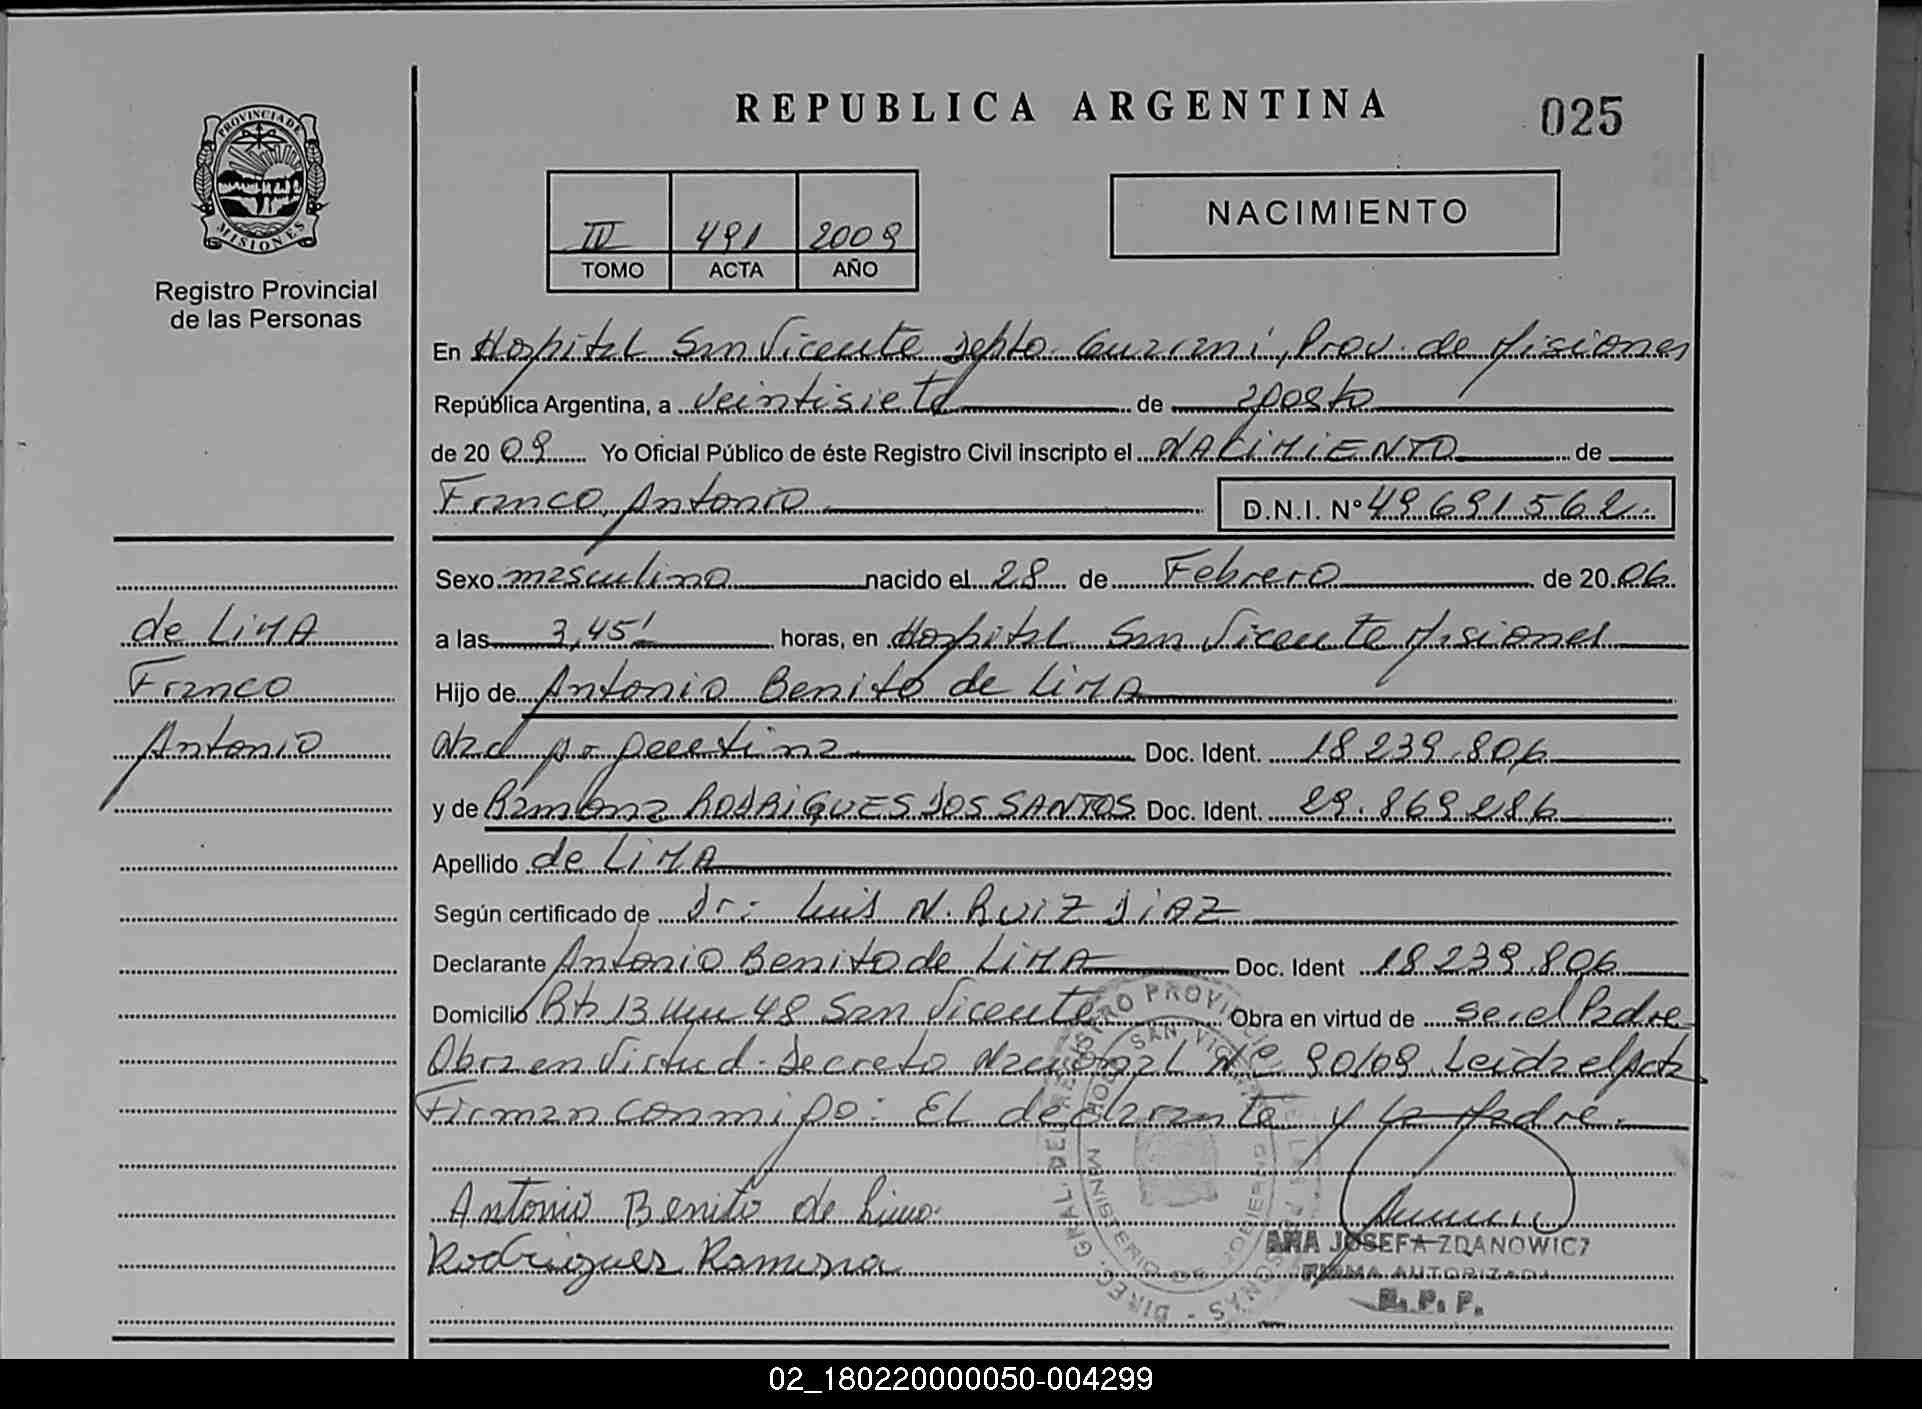 REPUBLICA ARGENTINA
025
PROVINCIA DE
MISIONES
Registro Provincial
de las Personas
III 491 2009
TOMO ACTA AÑO
NACIMIENTO
En Hospital San Vicente Depto. Guarani, Prov. de Misiones
República Argentina, a veintisiete de agosto
de 2009 Yo Oficial Público de éste Registro Civil inscripto el NACIMIENTO de
Franco Antonio D.N.I. N° 49691562.
Sexo masculino nacido el 28 de Febrero de 2006.
a las 3,45' horas, en Hospital San Vicente Misiones
Hijo de Antonio Benito de LiMA
Nac argentina Doc. Ident. 18.239.806
y de Ramona RODRIGUES DOS SANTOS Doc. Ident. 29.869.286
Apellido de LiMA
Según certificado de Dr: Luis N. RUIZ DIAZ
Declarante Antonio Benito de LiMA Doc. Ident 18.239.806
Domicilio Rta 13 Km 48 San Vicente Obra en virtud de ser el Padre
Obra en Virtud - Decreto Nacional Nº 90/09 Leida el Acta
Firman conmigo: EL declarante y la Madre.
Antonio Benito de Lima
Rodrigues Ramona
ANA JOSEFA ZDANOWICZ
FIRMA AUTORIZADA
R. P. P.
de LiMA
Franco
Antonio
DIREC. GRAL. DEL REGISTRO PROVINCIAL DE LAS PERSONAS
MINISTERIO DE GOBIERNO
HOSP. SAN VICENTE
02_180220000050-004299